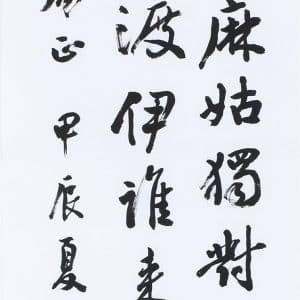 麻姑獨對
渡伊誰来
正甲辰夏